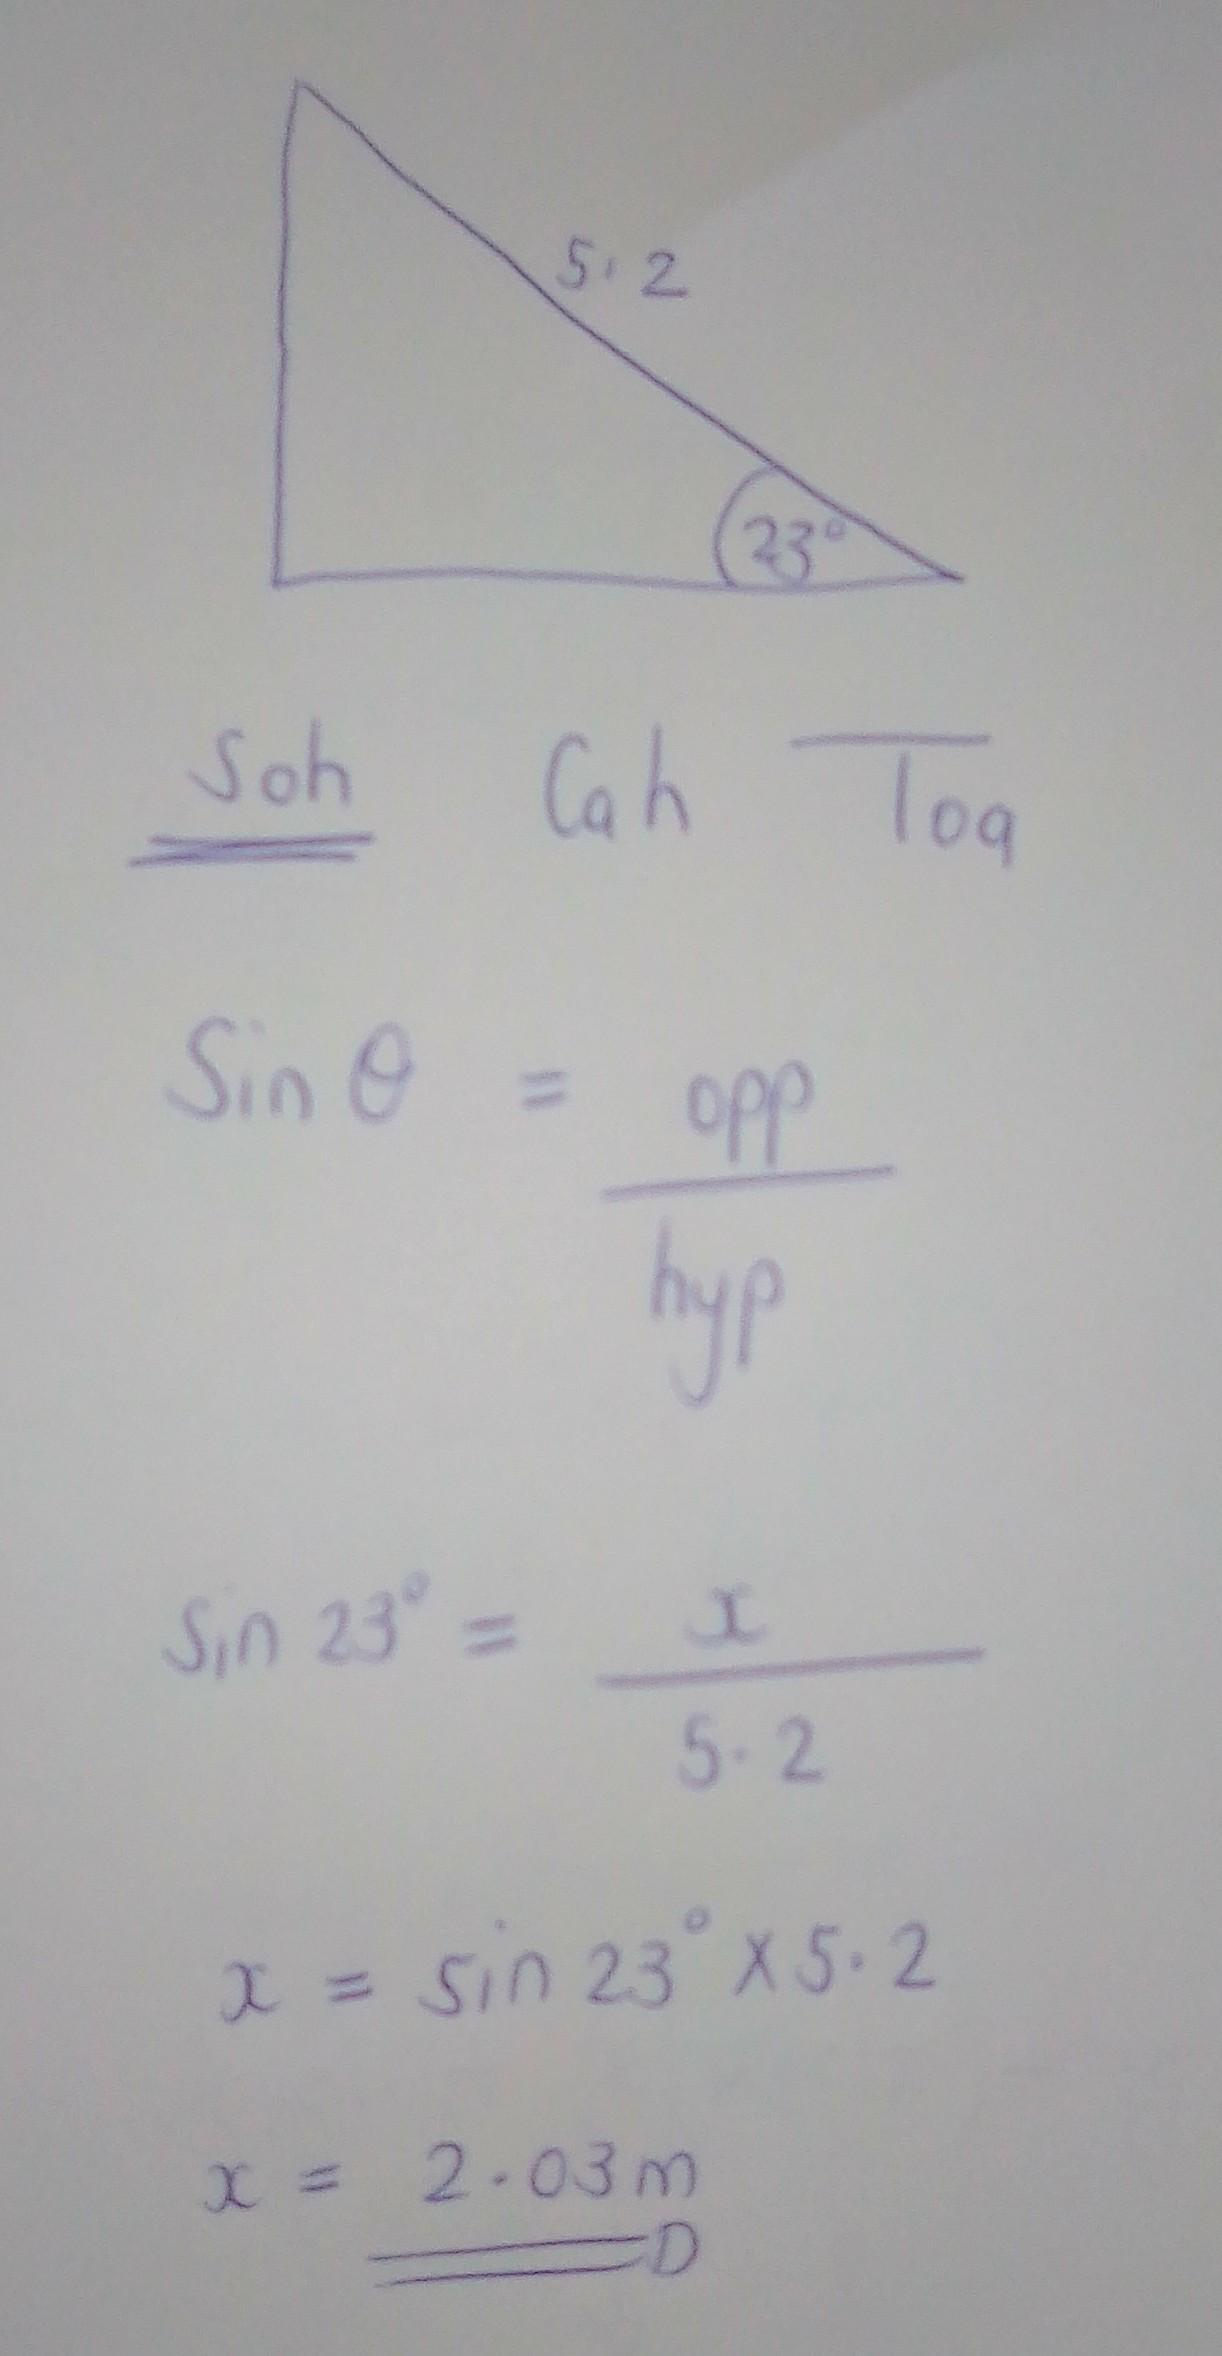 5.2
23°
Soh Cah Toa
Sin θ = opp
hyp
Sin 23° = x
5.2
x = sin 23° x 5.2
x = 2.03m
D